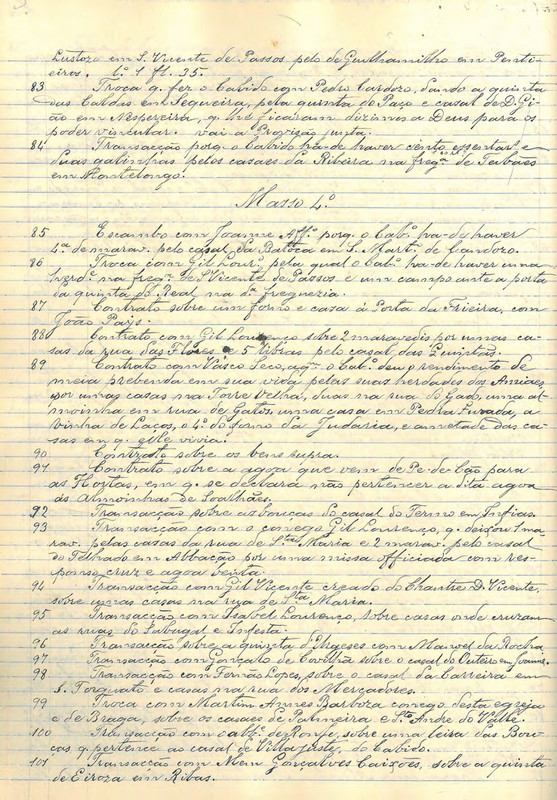 Lustoza em S. Vicente de Passos pelo de Guilhamilho em Penti-
eiros. L.º 1 fl. 35.
83 Troca q. fez o Cabido com Pedro Cardozo, dando a quinta
das Caldas em Sequeira, pela quinta do Paço e casal de D. Gi-
ão em Nespereira, q. lhe ficaram dizimos a Deus para os
poder vincular. Vai a Provisão junta.
84 Transacção porq. o Cabido ha-de haver cento, essenta e
duas galinhas pelos casaes da Ribeira na freg.ª de Taboães
em Montelongo.
Masso 4.º
85 Escambo com Joanne Aff.º porq. o Cab.º ha-de haver
4.ª de marav. pelo casal da Batóca em S. Mart.º de Candozo.
86 Troca com Gil Lour.º pela qual o Cab.º ha-de haver uma
herd.e na freg.ª de S. Vicente de Passos e um campo ante a porta
da quinta do Real na d.ª freguezia.
87 Contrato sobre um forno e casa á Porta da Frieira, com
João Pays.
88 Contrato com Gil Lourenço sobre 2 maravedis por umas ca-
sas da rua das Flores e 5 libras pelo casal das Quintas.
89 Contrato com Vasco Seco, aq.m o Cab.º deu o rendimento de
meia prebenda em sua vida pelas suas herdades dos Amiaes,
por umas casas na Torre Velha, duas na rua do Gado, uma al-
moinha em rua de Gatos, uma casa em Pedra Furada, a
vinha de Laços, o 4.º do forno da Judaria, e ametade das ca-
sas em q. elle vivia.
90 Contrato sobre os bens supra.
91 Contrato sobre a agoa que vem de Pé-de-Cão para
as Hortas, em q. se declara não pertencer a dita agoa
ás Almoinhas de Soalhães.
92 Transacção sobre as bouças do casal do Termo em Infias.
93 Transacção com o conego Gil Lourenço, q. deixou 1 ma-
rav. pelas casas da rua de S.ta Maria e 2 marav. pelo casal
do Telhado em Abbação por uma missa officiada com res-
ponso, cruz e agoa benta.
94 Transacção com Gil Vicente creado do Chantre D. Vicente,
sobre umas casas na rua de S.ta Maria.
95 Transacção com Isabel Lourenço, sobre casas onde cruzam
as ruas do Sabugal e Infesta.
96 Transacção sobre a quinta d'Urgeses com Manoel da Rocha.
97 Transacção com Gonçalo de Covilhã sobre o casal do Outeiro em
98 Transacção com Fernão Lopes, sobre o casal da Carreira em
S. Torquato e casas na rua dos Mercadores.
99 Troca com Martim Annes Barboza conego desta egreja
e de Braga, sobre os casaes de Palmeira e S.to André do Valle.
100 Transacção com o ab.e de Ronfe, sobre uma leira das Bou-
ças q. pertence ao casal de Villa Juste, do Cabido.
101 Transacção com Mem Gonçalves Caixões, sobre a quinta
de Eiroza em Ribas.